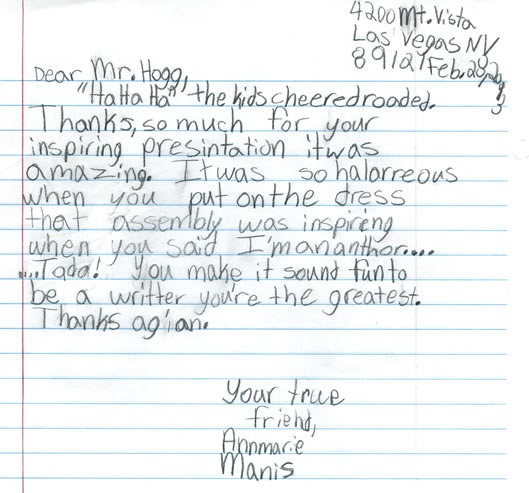 4200 Mt. Vista
Las Vegas NV
89121 Feb. 28,
Dear Mr. Hogg,
"Ha Ha Ha" the kids cheered roaded.
Thanks, so much for your
inspiring presintation it was
amazing. It was so halarreous
when you put on the dress
that assembly was inspireng
when you said I'm an anthor....
....Tada! you make it sound fun to
be a writter you're the greatest.
Thanks ag'ian.
Your true
friend,
Annmarie
Manis